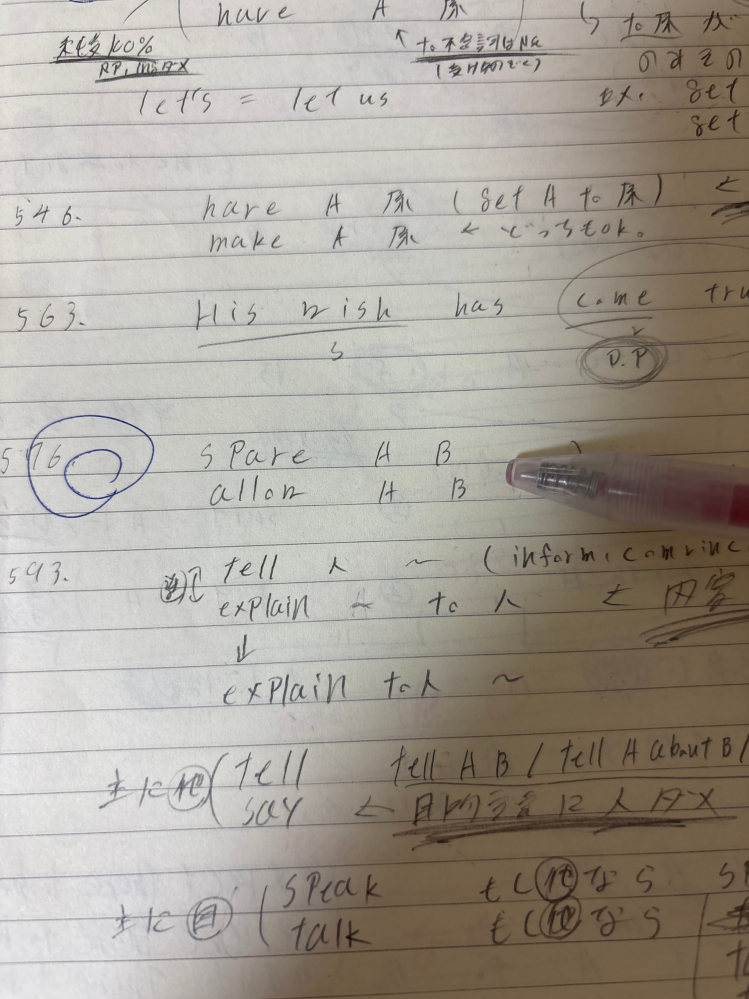 have A 原
to 原
RP, ing ダメ
let's = let us
ex. get
get
546. have A 原 (get A to 原) ←
make A 原 ← どっちもOK。
563. His wish has come tru
S
P.P
576. spare A B
allow A B
593. tell 人 ~ (inform, convince
explain ~ to 人 ← 内容
↓
explain to 人 ~
主に他 ( tell tell A B / tell A about B /
say ← 目的語に人ダメ
主に自 ( speak もし他なら
talk もし他なら